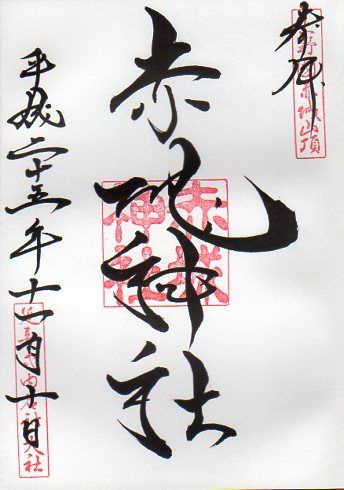 奉拝
赤城山頂
赤城神社
赤城神社
平成二十五年十一月十日